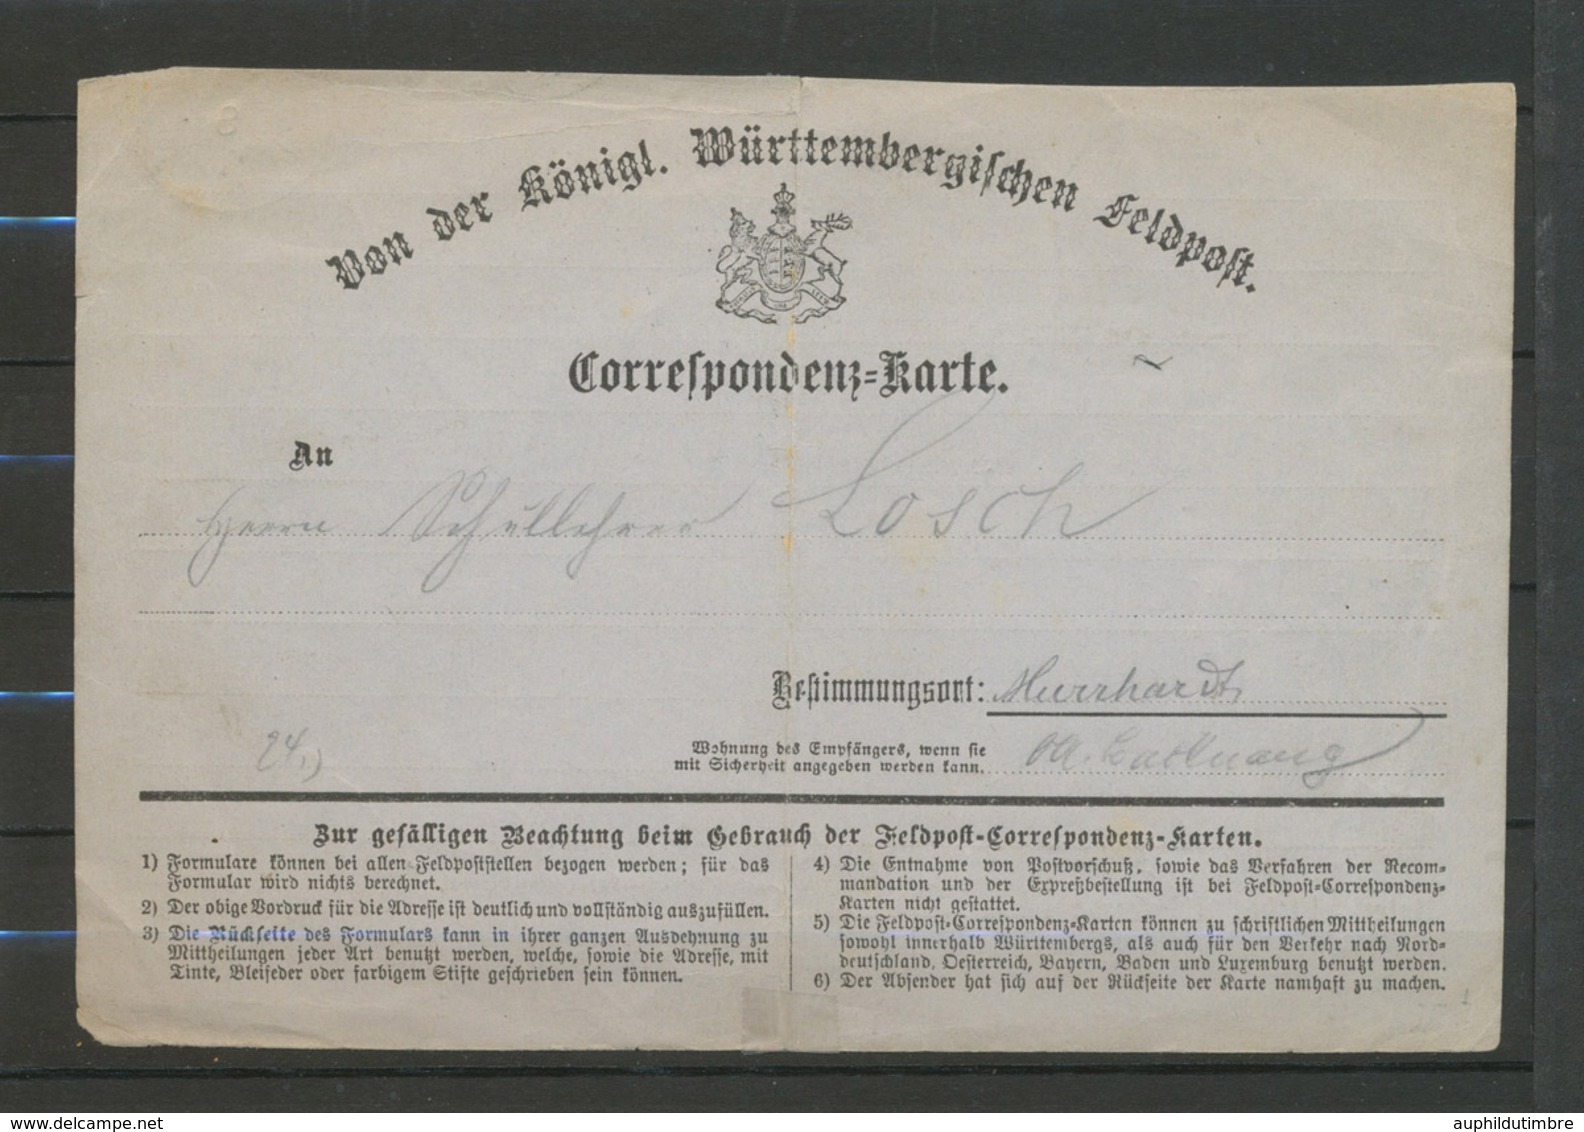 Von der Königl. Württembergischen Feldpost.
Correspondenz-Karte.
An
Herrn Schullehrer Losch
Bestimmungsort: Murrhardt
Wohnung des Empfängers, wenn sie
mit Sicherheit angegeben werden kann.
OA. Backnang
24.)
Zur gefälligen Beachtung beim Gebrauch der Feldpost-Correspondenz-Karten.
1) Formulare können bei allen Feldpoststellen bezogen werden; für das
Formular wird nichts berechnet.
2) Der obige Vordruck für die Adresse ist deutlich und vollständig auszufüllen.
3) Die Rückseite des Formulars kann in ihrer ganzen Ausdehnung zu
Mittheilungen jeder Art benutzt werden, welche, sowie die Adresse, mit
Tinte, Bleifeder oder farbigem Stifte geschrieben sein können.
4) Die Entnahme von Postvorschuß, sowie das Verfahren der Recom-
mandation und der Expreßbestellung ist bei Feldpost-Correspondenz-
Karten nicht gestattet.
5) Die Feldpost-Correspondenz-Karten können zu schriftlichen Mittheilungen
sowohl innerhalb Württembergs, als auch für den Verkehr nach Nord-
deutschland, Oesterreich, Bayern, Baden und Luxemburg benutzt werden.
6) Der Absender hat sich auf der Rückseite der Karte namhaft zu machen.
www.delcampe.net
auphildutimbre